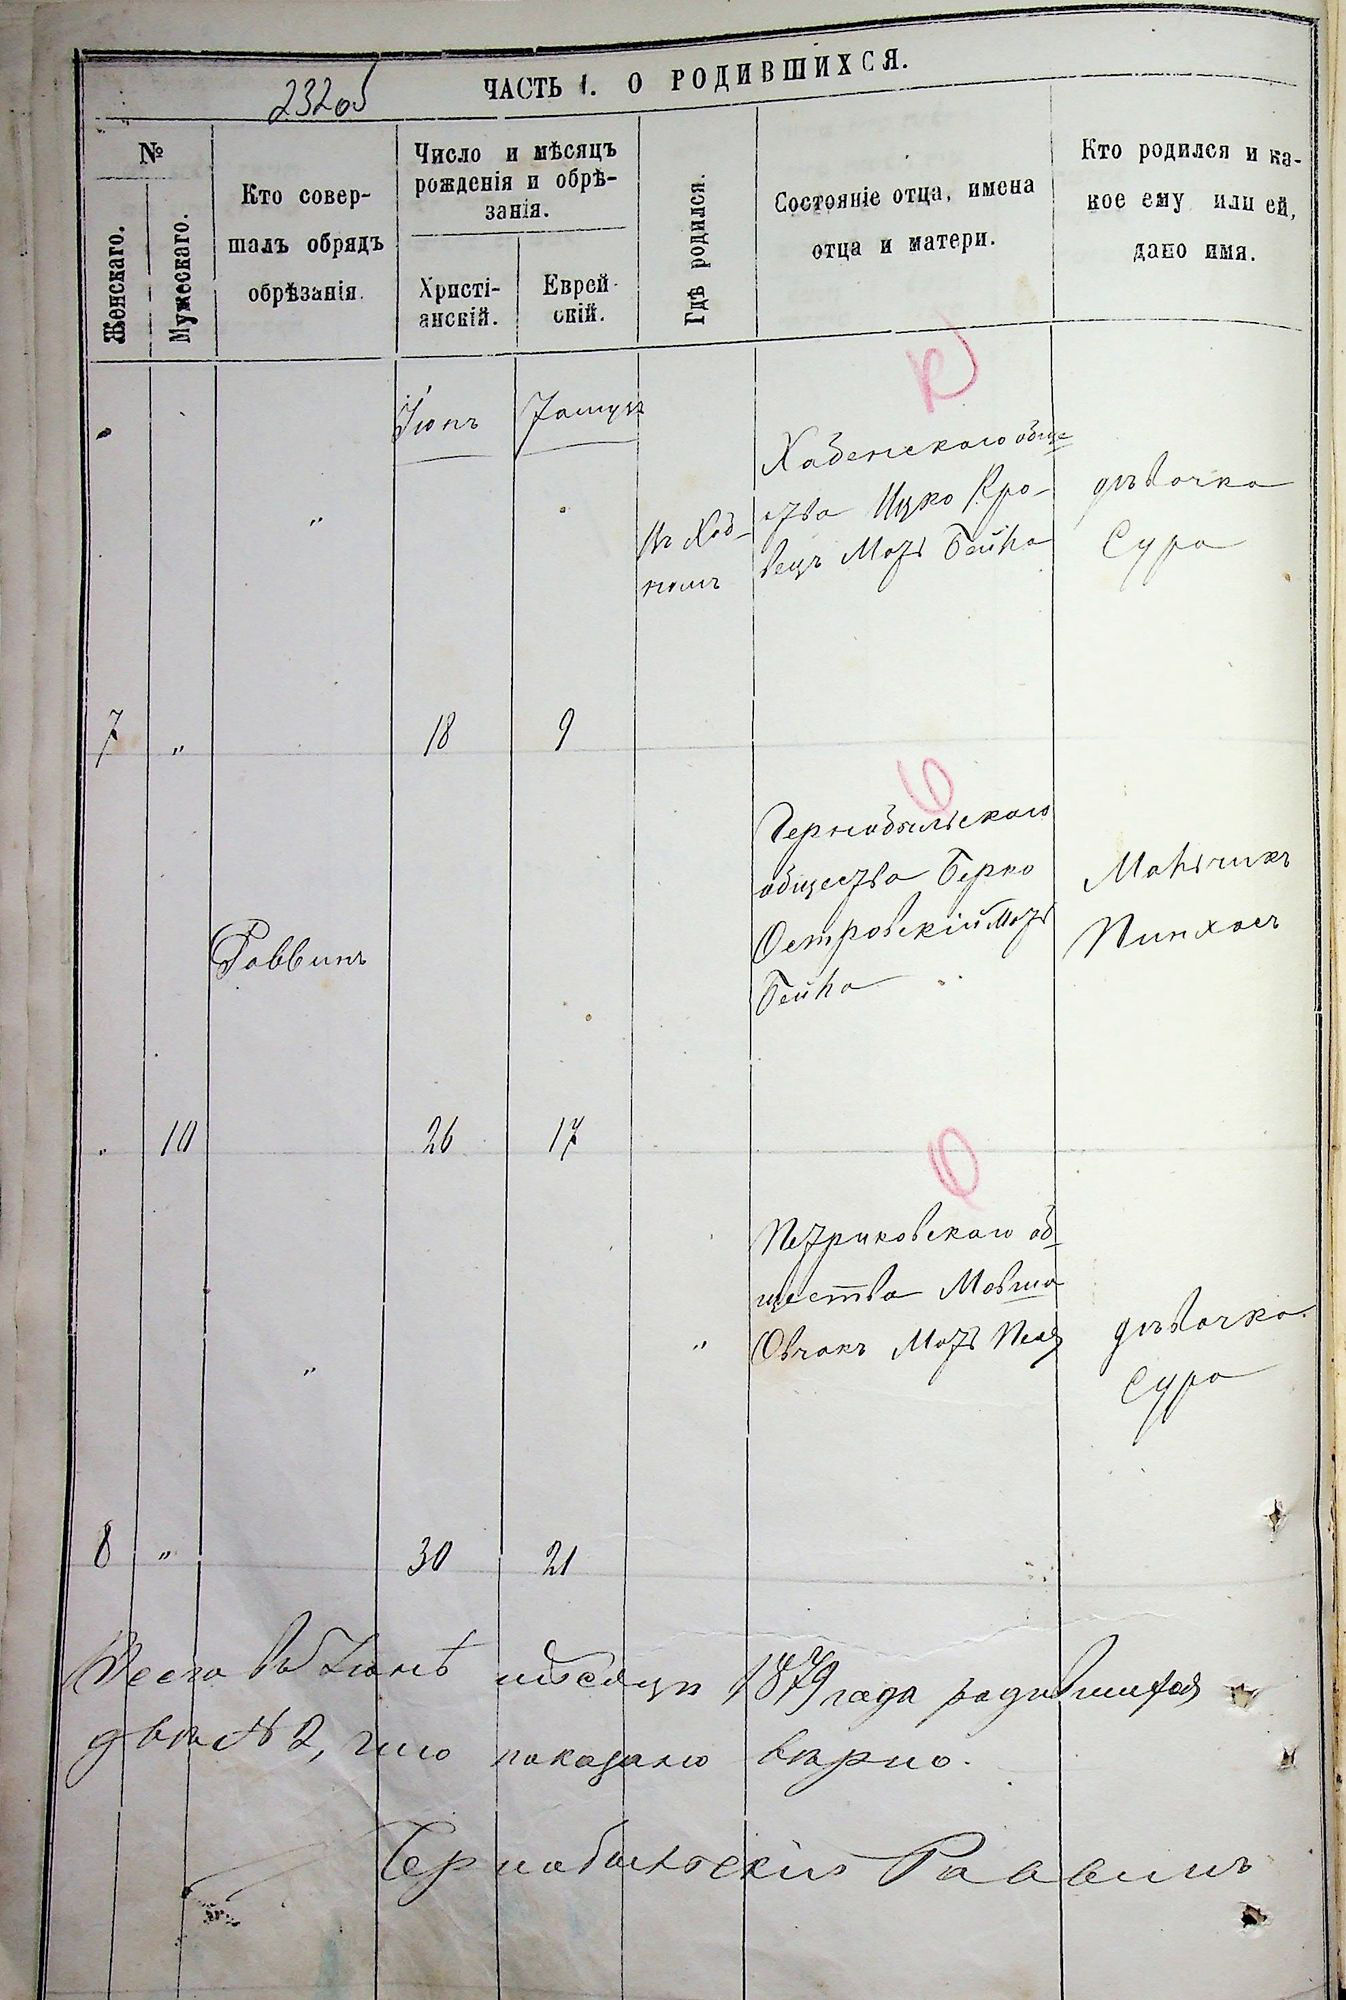 232об
ЧАСТЬ 1. О РОДИВШИХСЯ.
№
Женскаго.
Мужескаго.
Кто совер-
шалъ обрядъ
обрѣзанія.
Число и мѣсяцъ
рожденія и обрѣ-
занія.
Христі-
анскій.
Еврей-
скій.
Гдѣ родился.
Состояніе отца, имена
отца и матери.
Кто родился и ка-
кое ему или ей,
дано имя.
Іюнь
Тамузъ
"
Въ Хаб-
номъ
Хабенскаго обще-
ства Ицко Кро-
вецъ Мать Бейла
дѣвочка
Сура
7 " 18 9
Раввинъ
Чернобыльскаго
общества Берко
Островскій Мать
Бейла
Мальчикъ
Пинхасъ
" 10 26 17
"
"
Петриковскаго об-
щества Мовша
Овчакъ Мать Песя
дѣвочка
Сура
8 " 30 21
Всего въ Іюнѣ мѣсяцѣ 1879 года родившихся
два № 2, что показано вѣрно.
Чернобыльскій Раввинъ